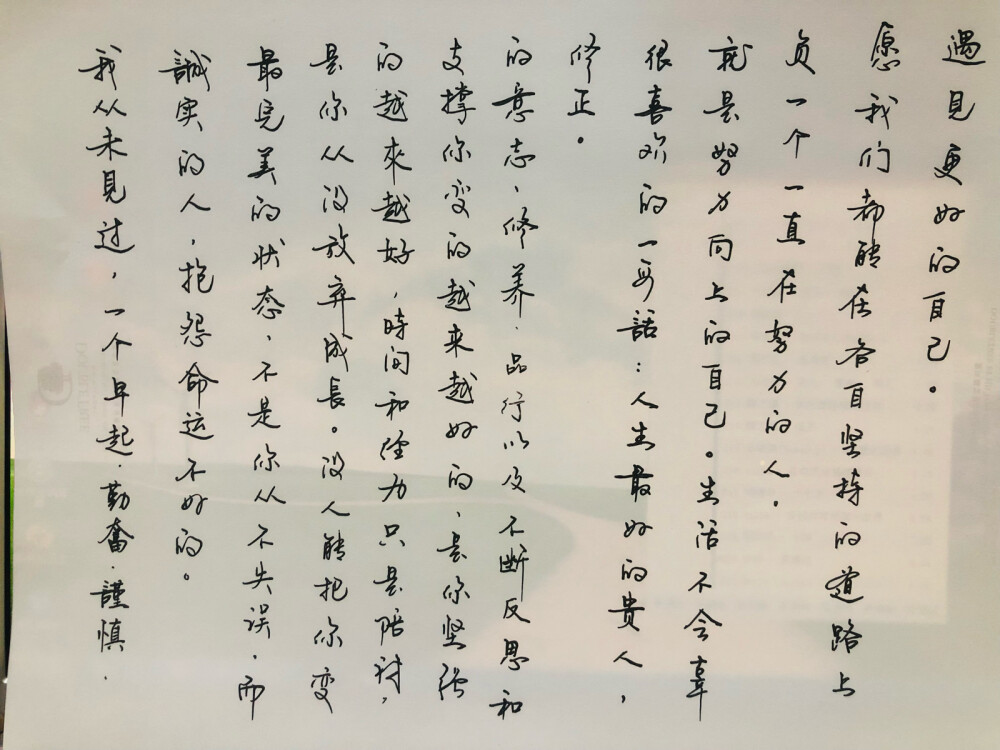 我从未见过，一个早起.勤奋.謹慎.
誠实的人，抱怨命运不好的。
最完美的状态，不是你从不失误.而
是你从没放弃成長。没人能把你变
的越來越好，時间和经力只是陪衬，
支撑你变的越来越好的、是你坚强
的意志、修养.品行以及不断反思和
修正。
很喜欢的一句話：人生最好的贵人，
就是努力向上的自己。生活不会辜
负一个一直在努力的人.
愿我们都能在各自坚持的道路上
遇见更好的自己。